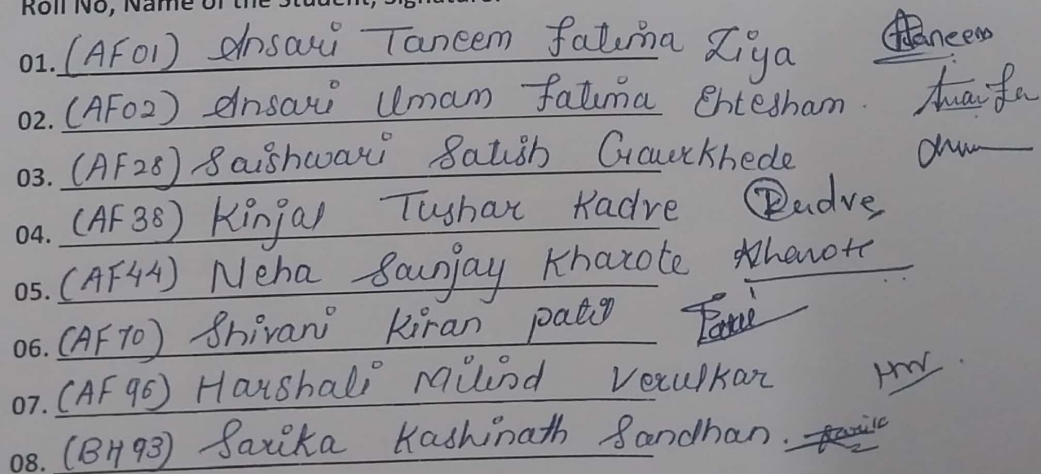 Roll No, Name of the Student, Signature:
01. (AF01) Ansari Taneem Fatima Ziya Taneem
02. (AF02) Ansari Umam Fatima Ehtesham.
03. (AF28) Saishwari Satish Gaurkhede
04. (AF38) Kinjal Tushar Kadve
05. (AF44) Neha Sanjay Kharote Kharote
06. (AF70) Shivani Kiran patil
07. (AF96) Harshali Milind Verulkar
08. (BH93) Sarika Kashinath Sandhan.